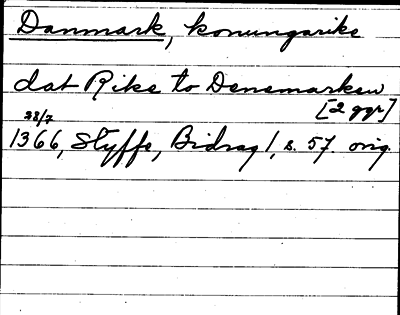 Danmark, konungarike
dat Rike to Denemarken
[2 ggr]
28/7
1366, Styffe, Bidrag 1, s. 57. orig.